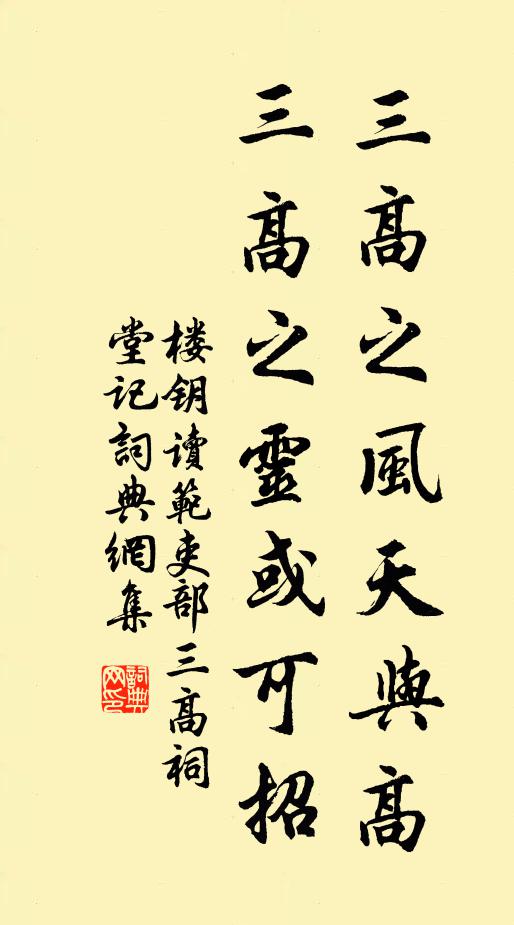 三高之風天與高
三高之靈或可招
楼钥讀範吏部三高祠
堂记詞典網集
詞典网印